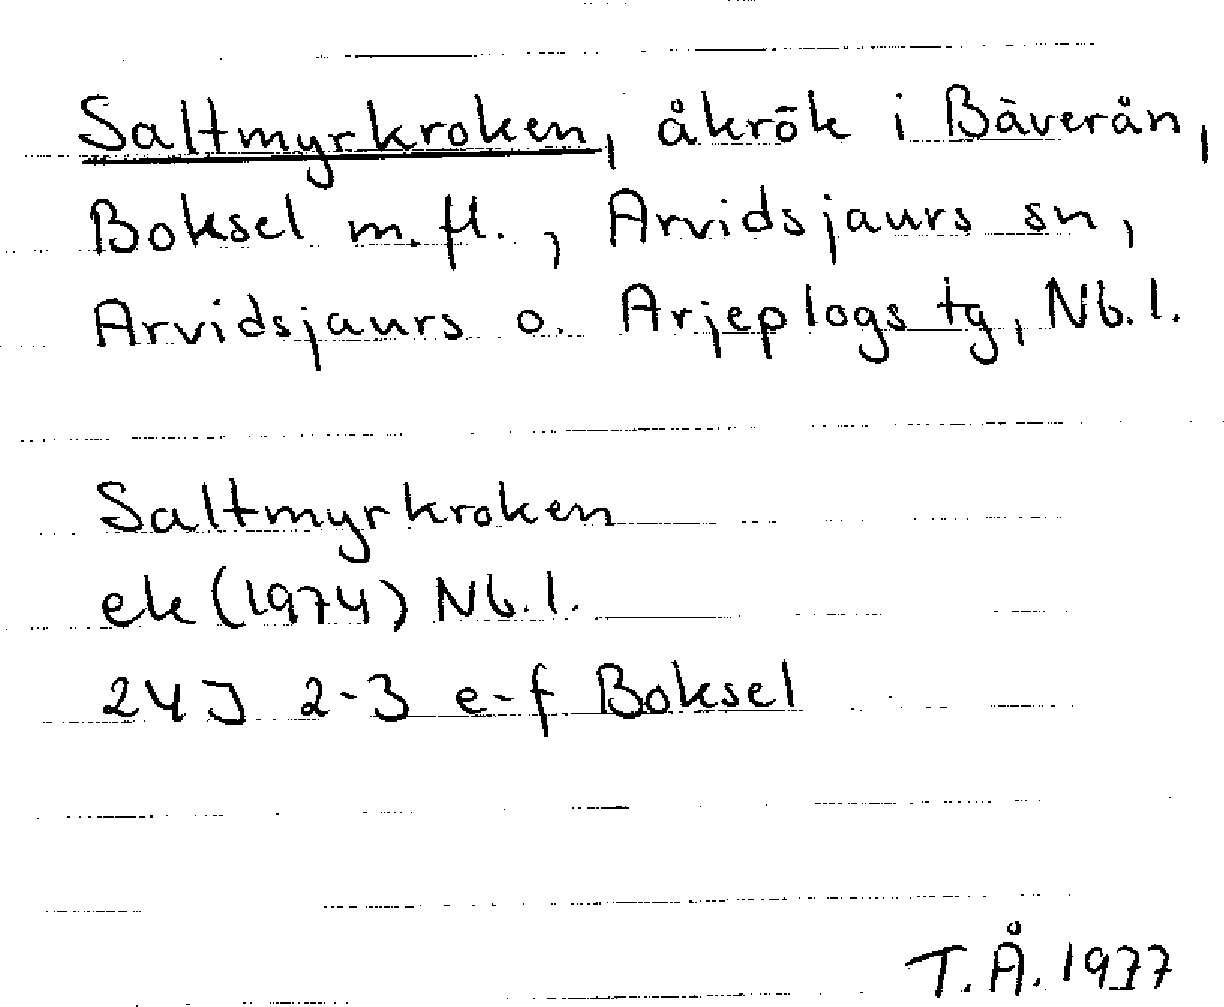 Saltmyrkroken, åkrök i Bäverån,
Boksel m.fl., Arvidsjaurs sn,
Arvidsjaurs o. Arjeplogs tg, Nb.l.
Saltmyrkroken
ek (1974) Nb.l.
24J 2-3 e-f Boksel
T.Å. 1977